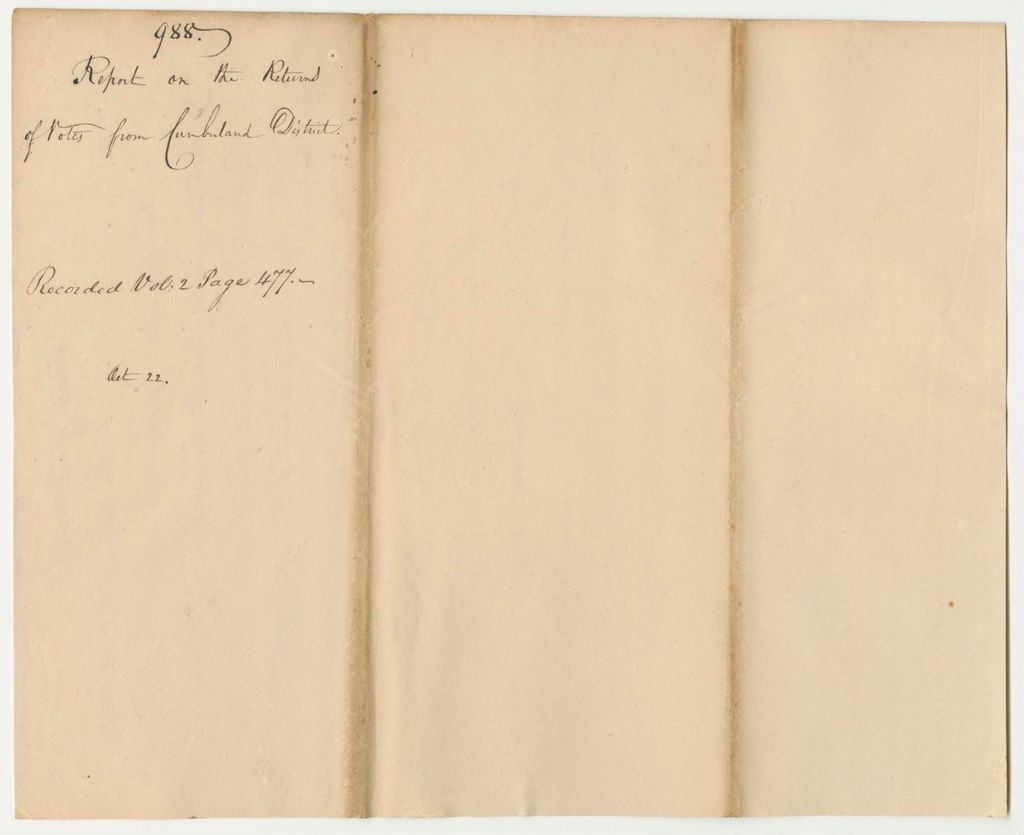 988.
Report on the Returns
of Votes from Cumberland District.
Recorded Vol: 2 Page 477.-
Oct 22.